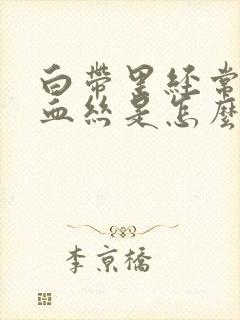 白帶里經常
血絲是怎麼
李京橋